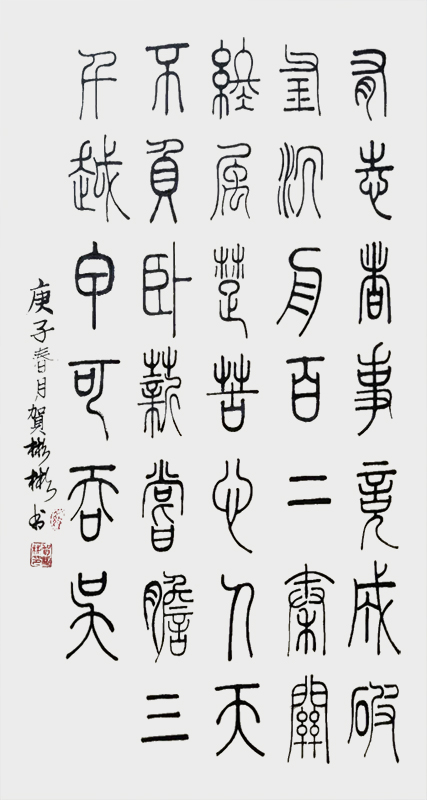 有志者事竟成破
釜沉舟百二秦關
終属楚苦心人天
不負臥薪嘗膽三
千越甲可吞吳
庚子春月賀彬彬书